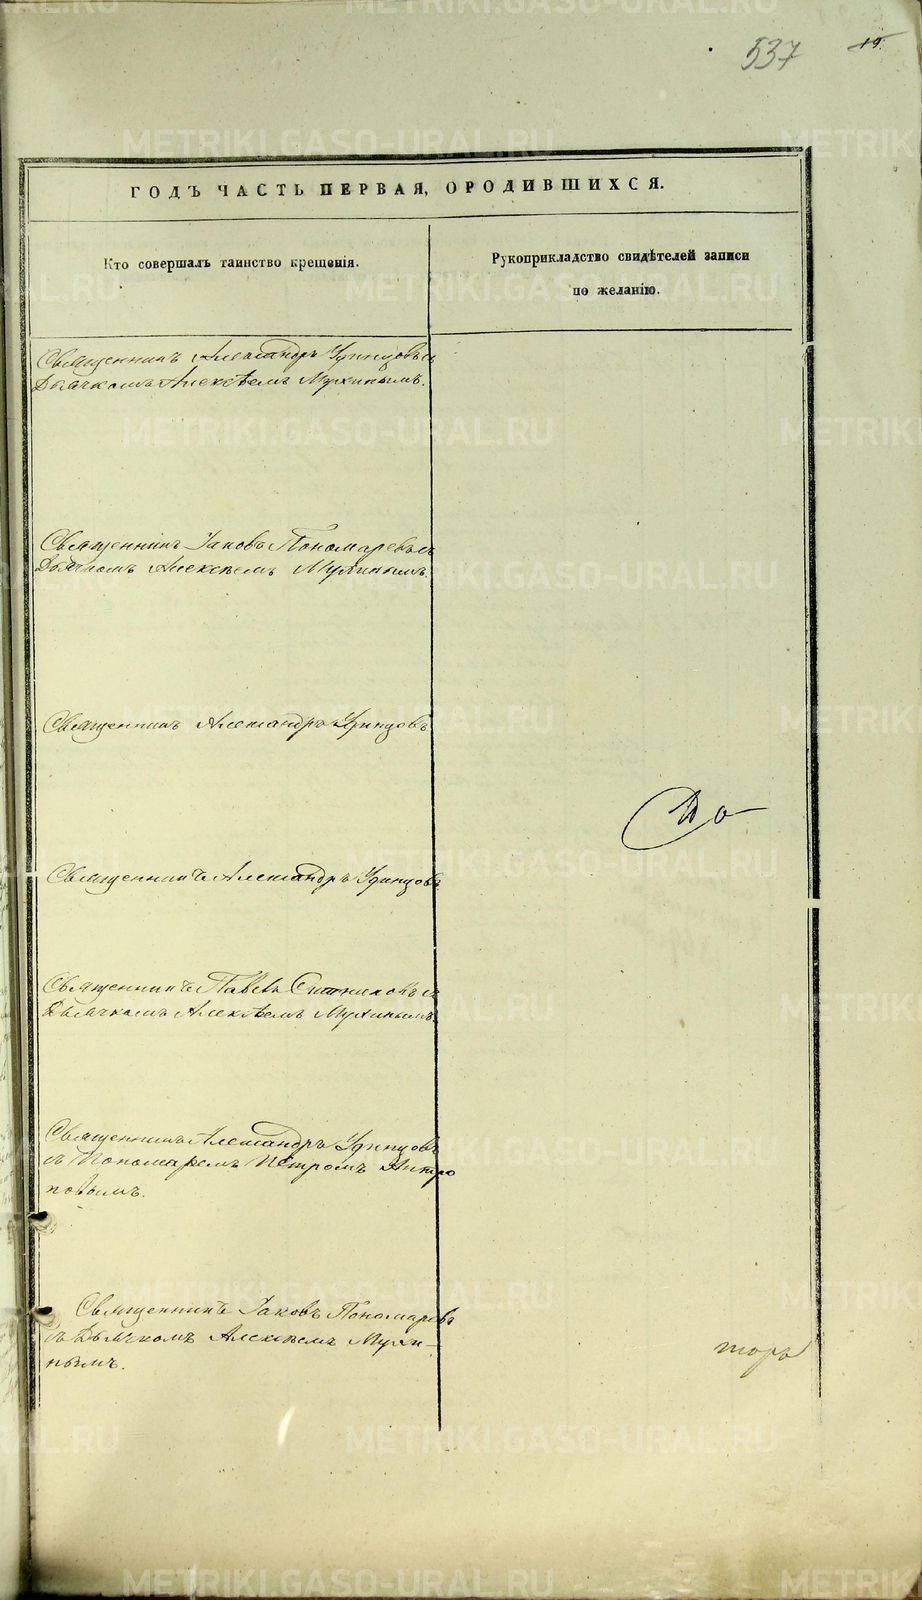 537 19
ГОДЪ ЧАСТЬ ПЕРВАЯ, О РОДИВШИХСЯ.
Кто совершалъ таинство крещенія.
Рукоприкладство свидѣтелей записи
по желанію.
Священникъ Александръ Удинцовъ съ
Дьячкомъ Алексѣемъ Мухинымъ.
Священникъ Іаковъ Пономаревъ съ
Дьячкомъ Алексѣемъ Мухинымъ.
Священникъ Александръ Удинцовъ
Священникъ Александръ Удинцовъ
Священникъ Павелъ Ситниковъ съ
Дьячкомъ Алексѣемъ Мухинымъ.
Священникъ Александръ Удинцовъ
съ Пономаремъ Петромъ Антро
повымъ.
Священникъ Іаковъ Пономаревъ
съ Дьячкомъ Алексѣемъ Мухи-
нымъ.
торъ
METRIKI.GASO-URAL.RU